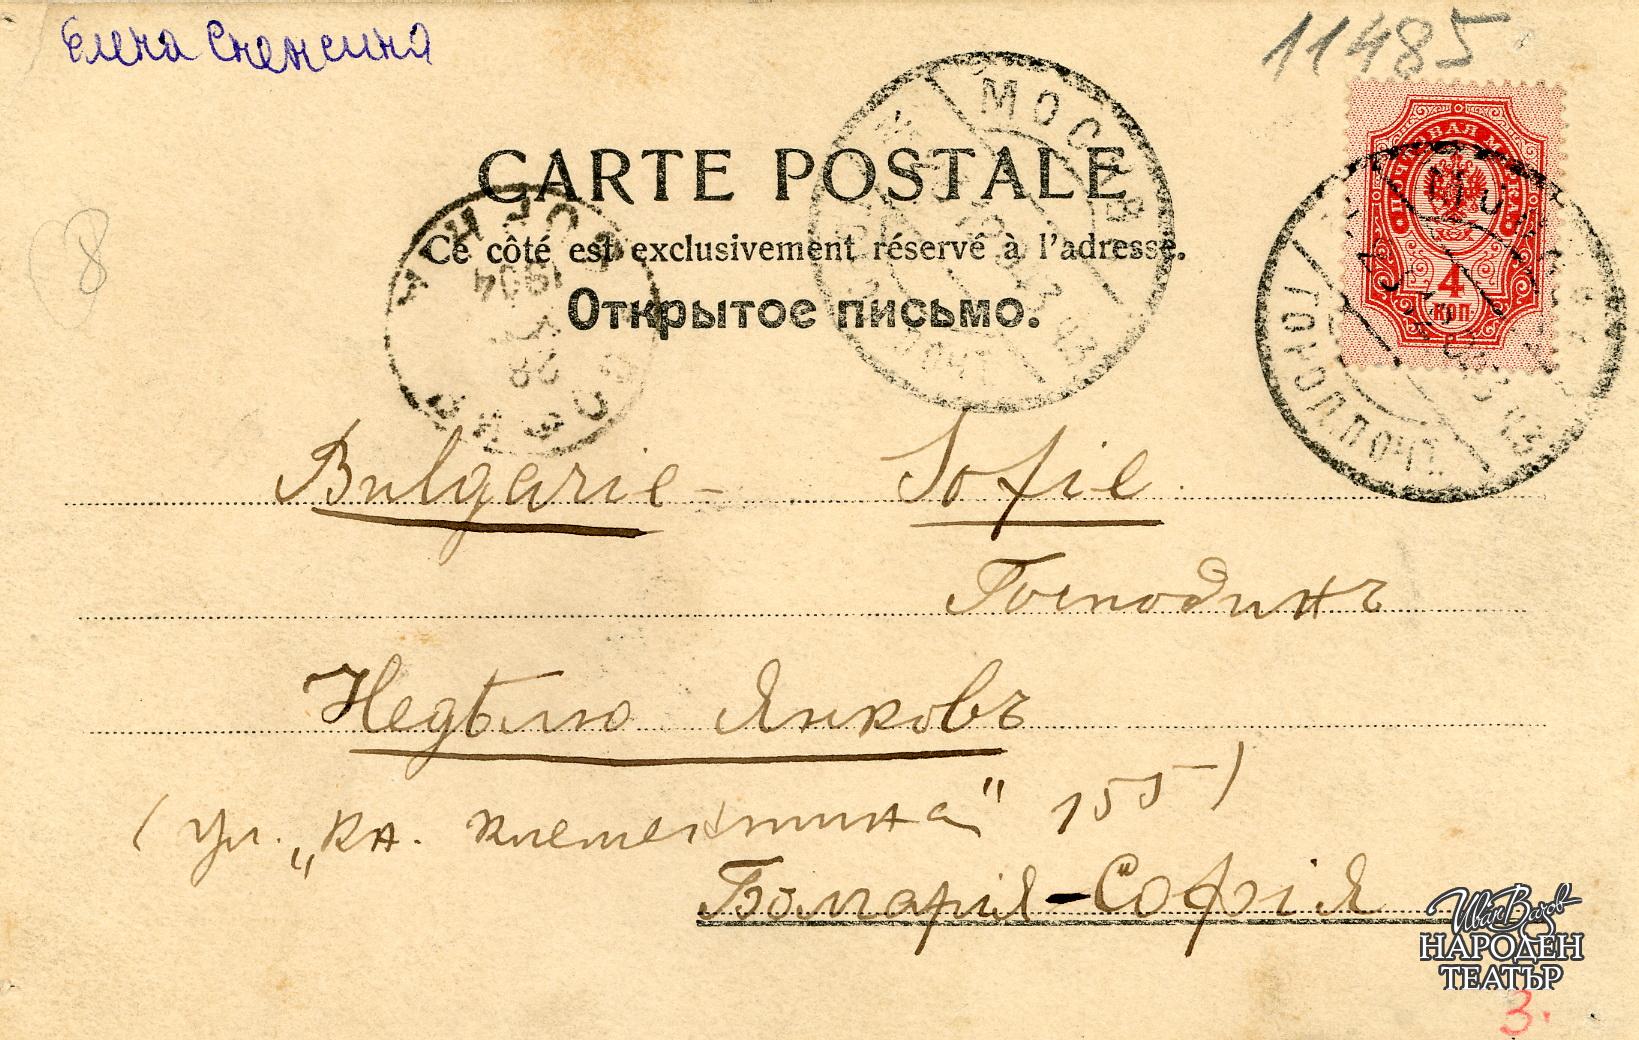 Елена Снежина
11485
МОСКВА
CARTE POSTALE
ПОЧТОВАЯ МАРКА
4
КОП.
Ce côté est exclusivement réservé à l'adresse.
Открытое письмо.
СОФИЯ
1904
28
ГОР.ПОЧТ.
8
Bulgarie - Sofie
Господинъ
Недѣлю Янковъ
(ул. „Кн. Клементина" 155)
Болгарія - Софія
Иван Вазов
НАРОДЕН
ТЕАТЪР
3.